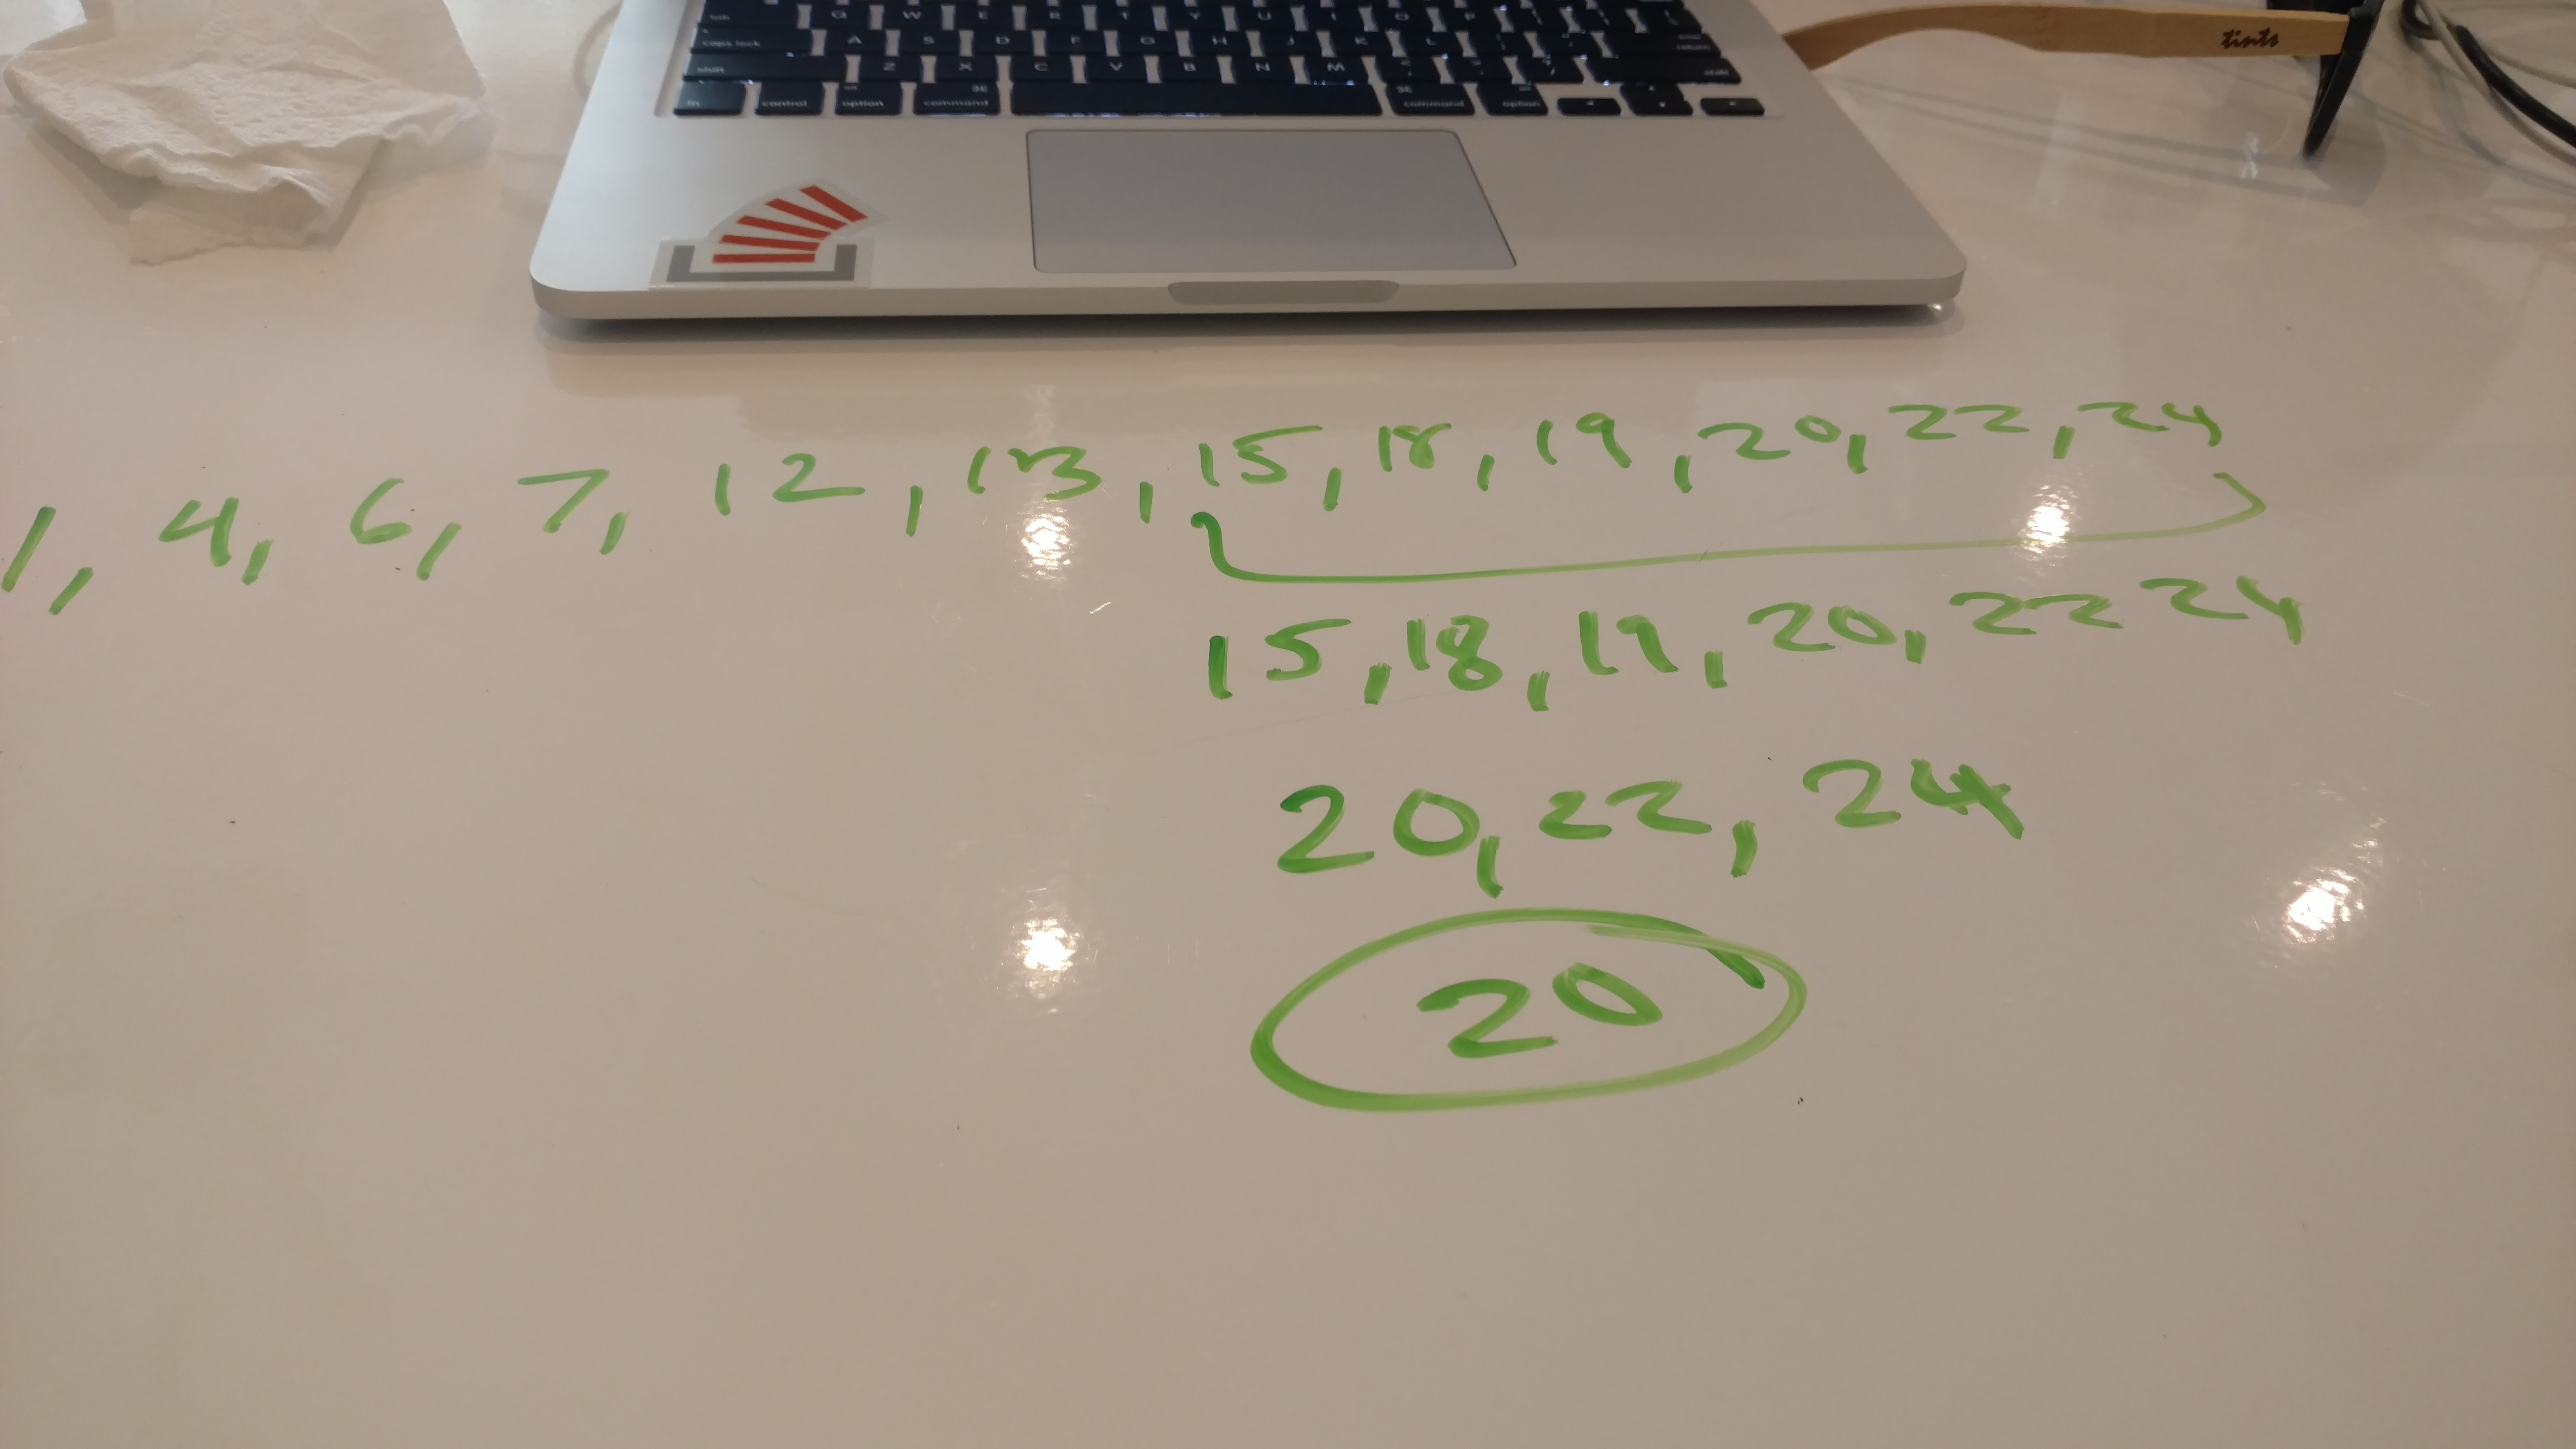 tab Q W E R T Y U I O P
caps lock A S D F G H J K L return
shift Z X C V B N M shift
fn control option command command option
tints
1, 4, 6, 7, 12, 13, 15, 18, 19, 20, 22, 24
15, 18, 19, 20, 22 24
20, 22, 24
20